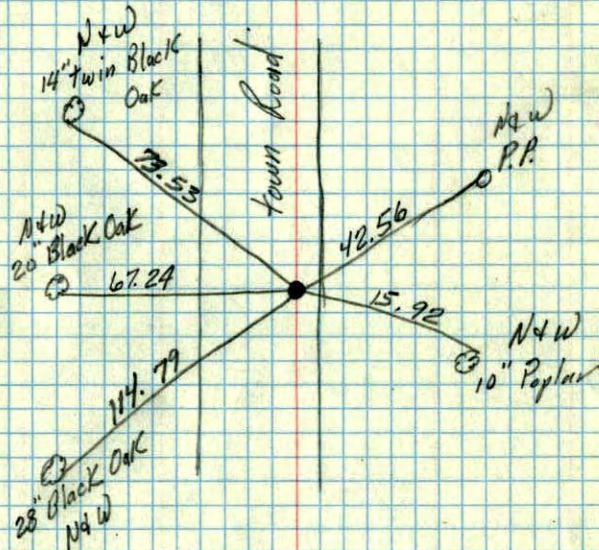 N & W
14" twin Black
Oak
73.53
town Road
N & W
P.P.
42.56
N & W
20" Black Oak
67.24
15.92
N & W
10" Poplar
114.79
28" Black Oak
N & W